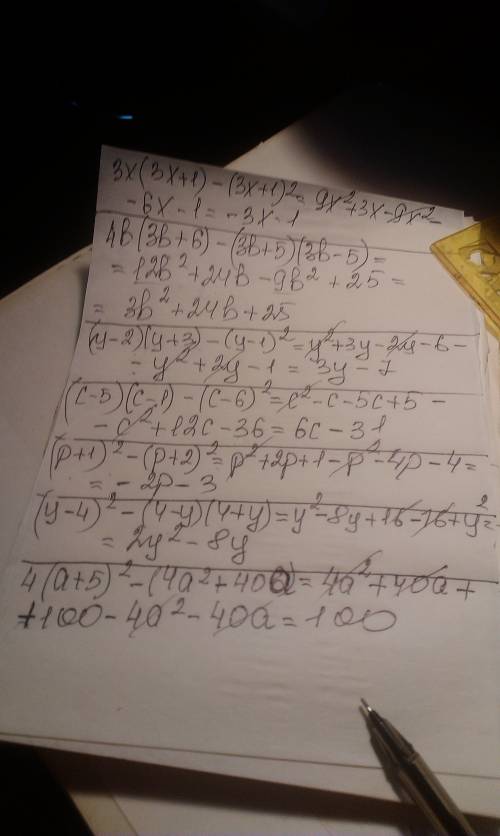 3x(3x+1)-(3x+1)²=9x²+3x-9x²-
-6x-1=-3x-1
4b(3b+6)-(3b+5)(3b-5)=
=12b²+24b-9b²+25=
=3b²+24b+25
(y-2)(y+3)-(y-1)²=y²+3y-2y-6-
-y²+2y-1=3y-7
(c-5)(c-1)-(c-6)²=c²-c-5c+5-
-c²+12c-36=6c-31
(p+1)²-(p+2)²=p²+2p+1-p²-4p-4=
=-2p-3
(y-4)²-(4-y)(4+y)=y²-8y+16-16+y²=
=2y²-8y
4(a+5)²-(4a²+40a)=4a²+40a+
+100-4a²-40a=100